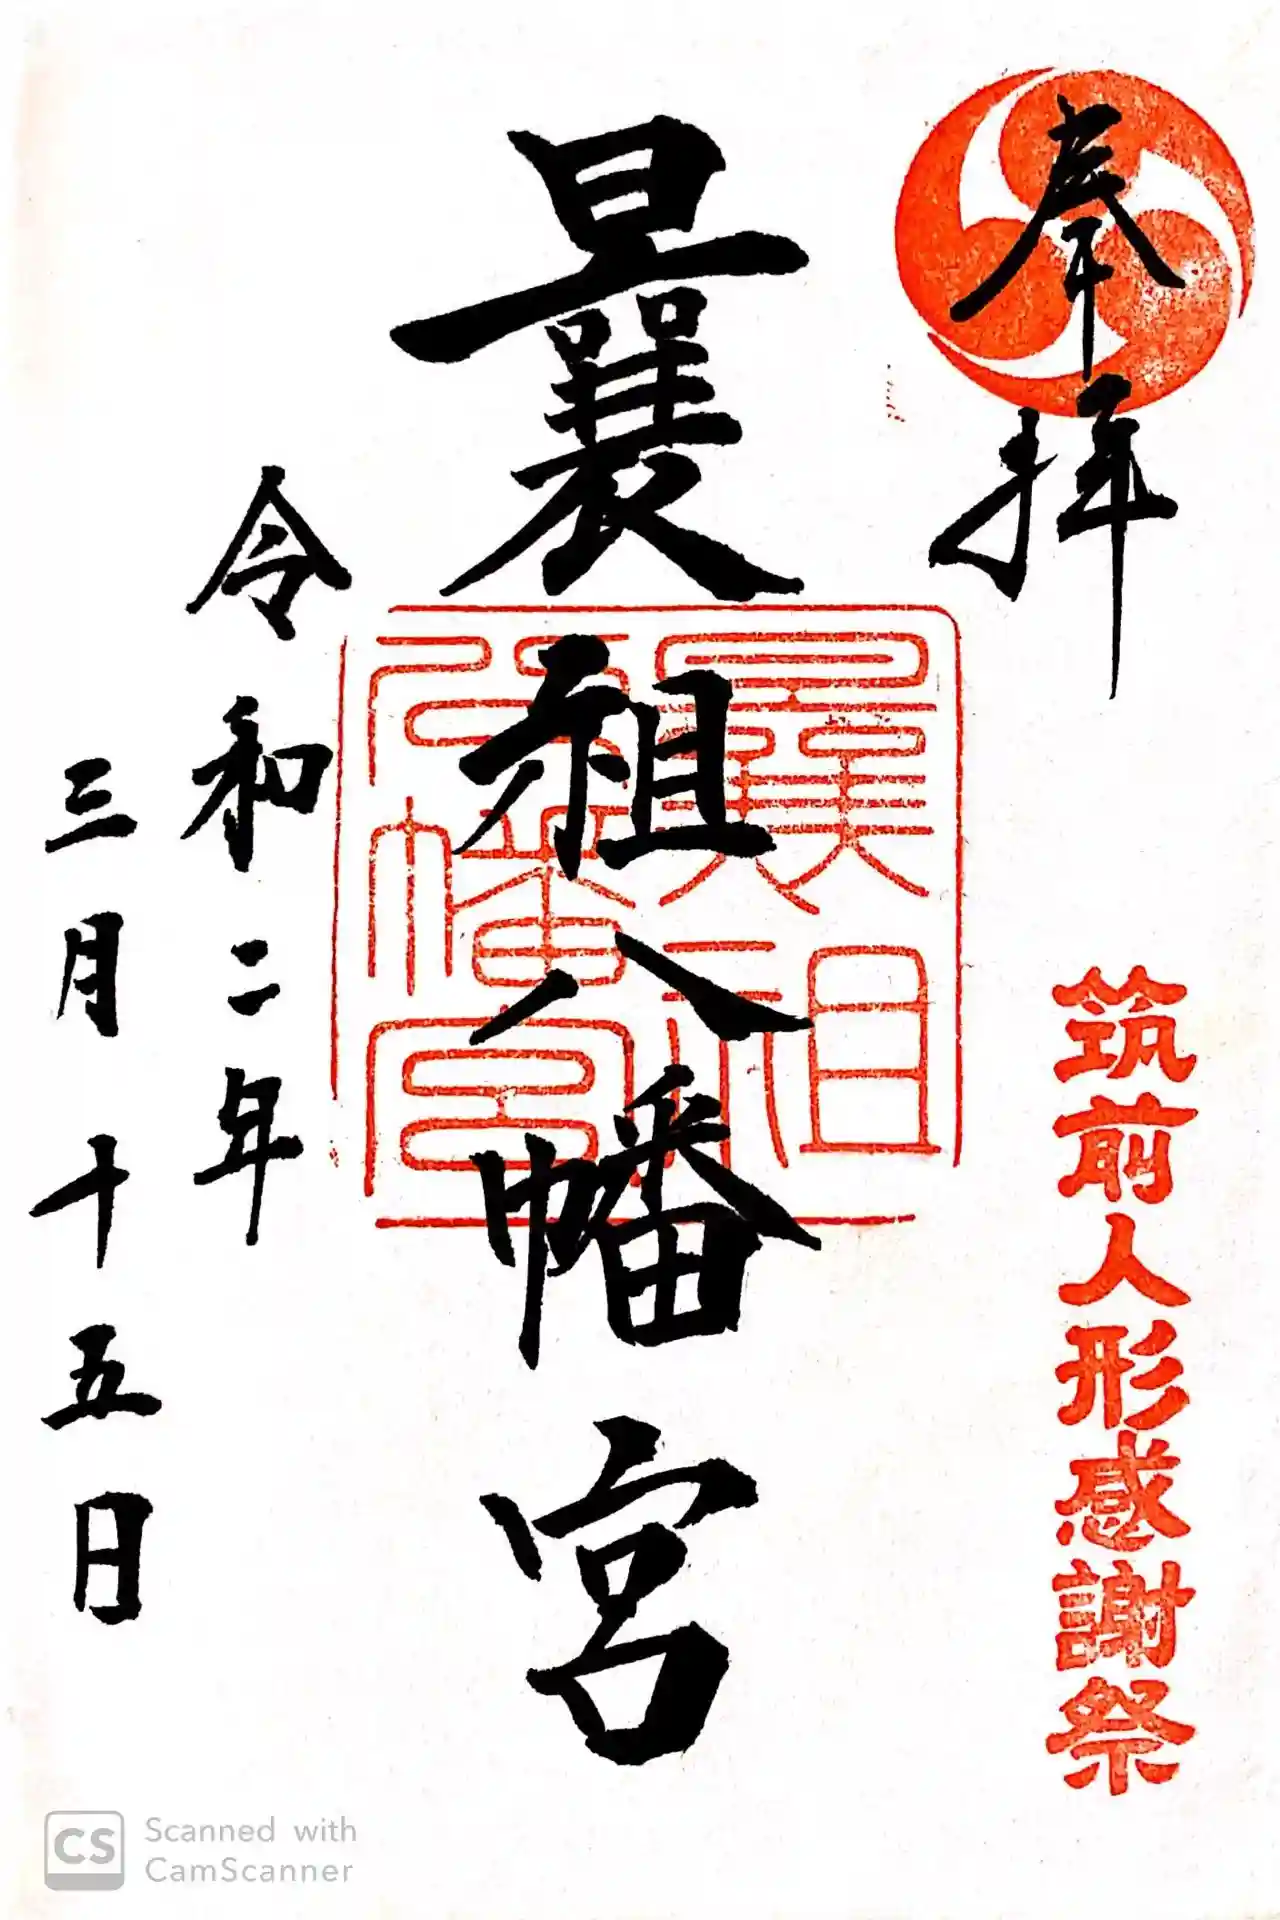 奉拝
筑前人形感謝祭
曩祖八幡宮
曩祖
八幡宮
令和二年
三月十五日
CS
Scanned with
CamScanner